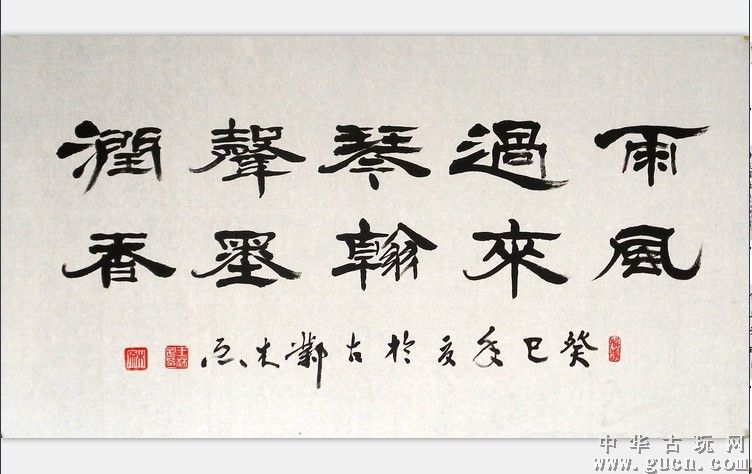 雨過琴聲潤
風來翰墨香
癸巳年夏於古鄴
中华古玩网
www.gucn.com